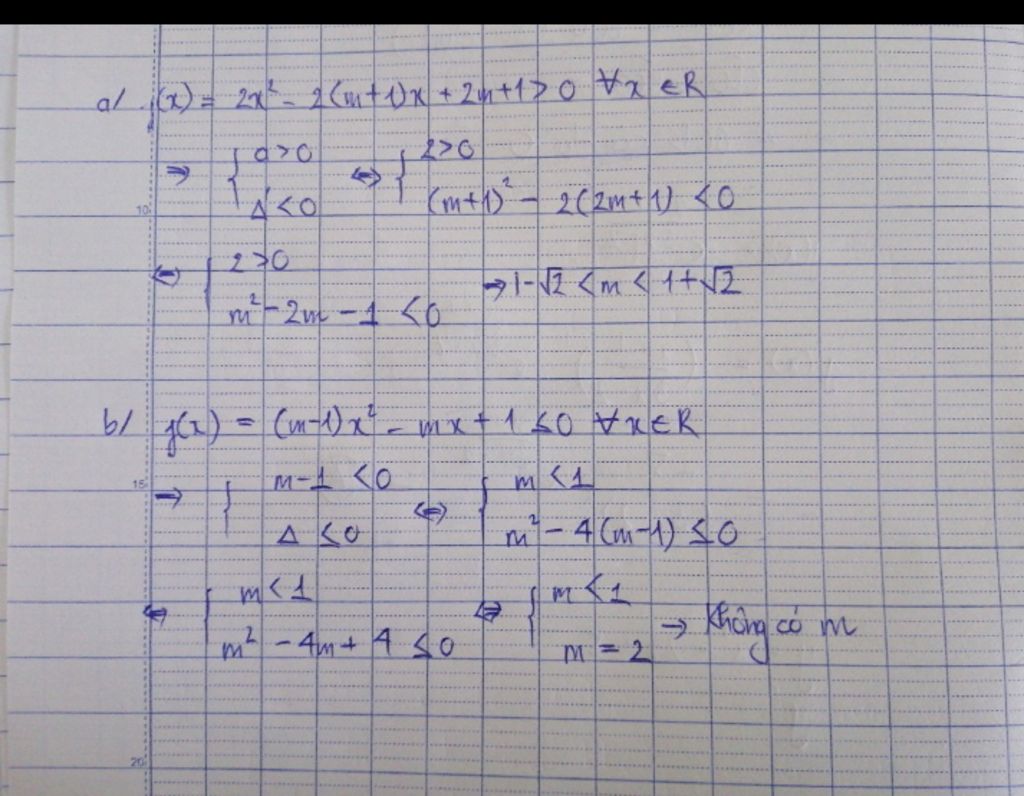 a/ f(x) = 2x² - 2(m+1)x + 2m+1 > 0 ∀x ∈ R
⇒ { a > 0 ⇔ { 2 > 0
Δ' < 0 (m+1)² - 2(2m+1) < 0
10
⇔ { 2 > 0
m² - 2m - 1 < 0 → 1-√2 < m < 1+√2
b/ f(x) = (m-1)x² - mx + 1 ≤ 0 ∀x ∈ R
15
→ { m-1 < 0 ⇔ { m < 1
Δ ≤ 0 m² - 4(m-1) ≤ 0
⇔ { m < 1 ⇔ { m < 1
m² - 4m + 4 ≤ 0 m = 2 → Không có m
20